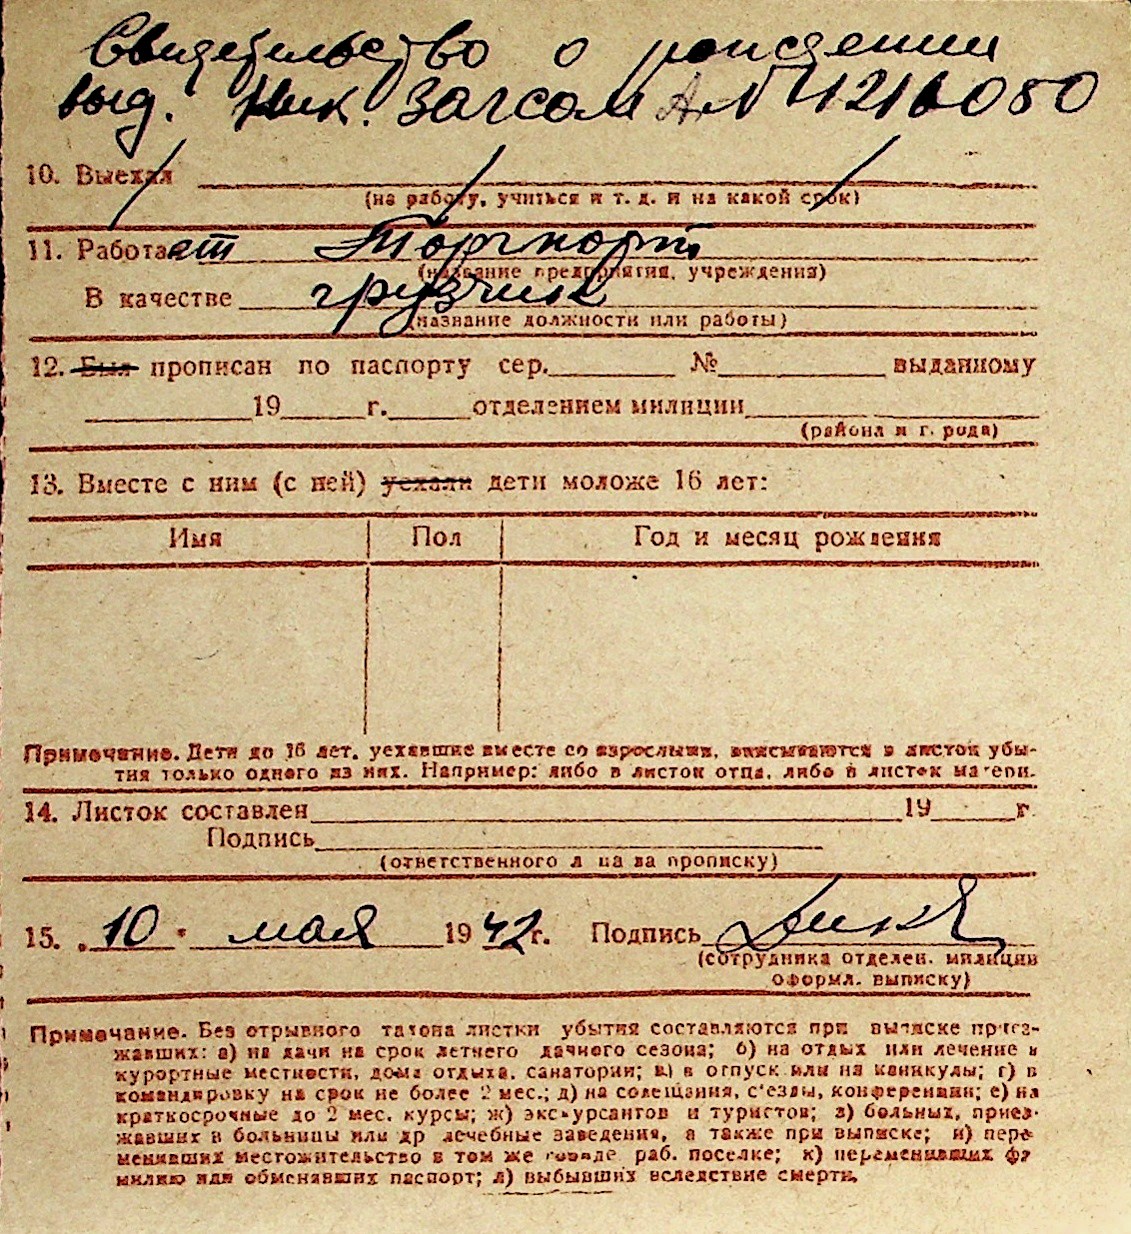 Свидетельство о рождении
выд. Ник. Загсом А №4216080
10. Выехал
(на работу, учиться и т. д. и на какой срок)
11. Работает Торгпорт
(название предприятия, учреждения)
В качестве грузчик
(название должности или работы)
12. Был прописан по паспорту сер. № выданному
19 г. отделением милиции
(района и города)
13. Вместе с ним (с ней) уехали дети моложе 16 лет:
Имя Пол Год и месяц рождения
Примечание. Дети до 16 лет, уехавшие вместе со взрослыми, вписываются в листок убы-
тия только одного из них. Например: либо в листок отца, либо в листок матери.
14. Листок составлен 19 г.
Подпись
(ответственного лица за прописку)
15. „10" мая 1942 г. Подпись
(сотрудника отделен. милиции
оформл. выписку)
Примечание. Без отрывного талона листки убытия составляются при выписке приез-
жавших: а) на дачи на срок летнего дачного сезона; б) на отдых или лечение в
курортные местности, дома отдыха, санатории; в) в отпуск или на каникулы; г) в
командировку на срок не более 2 мес.; д) на совещания, с'езды, конференции; е) на
краткосрочные до 2 мес. курсы; ж) экскурсантов и туристов; з) больных, приез-
жавших в больницы или др лечебные заведения, а также при выписке; и) пере-
менивших местожительство в том же городе раб. поселке; к) переменивших фа
милию или обменявших паспорт; л) выбывших вследствие смерти.